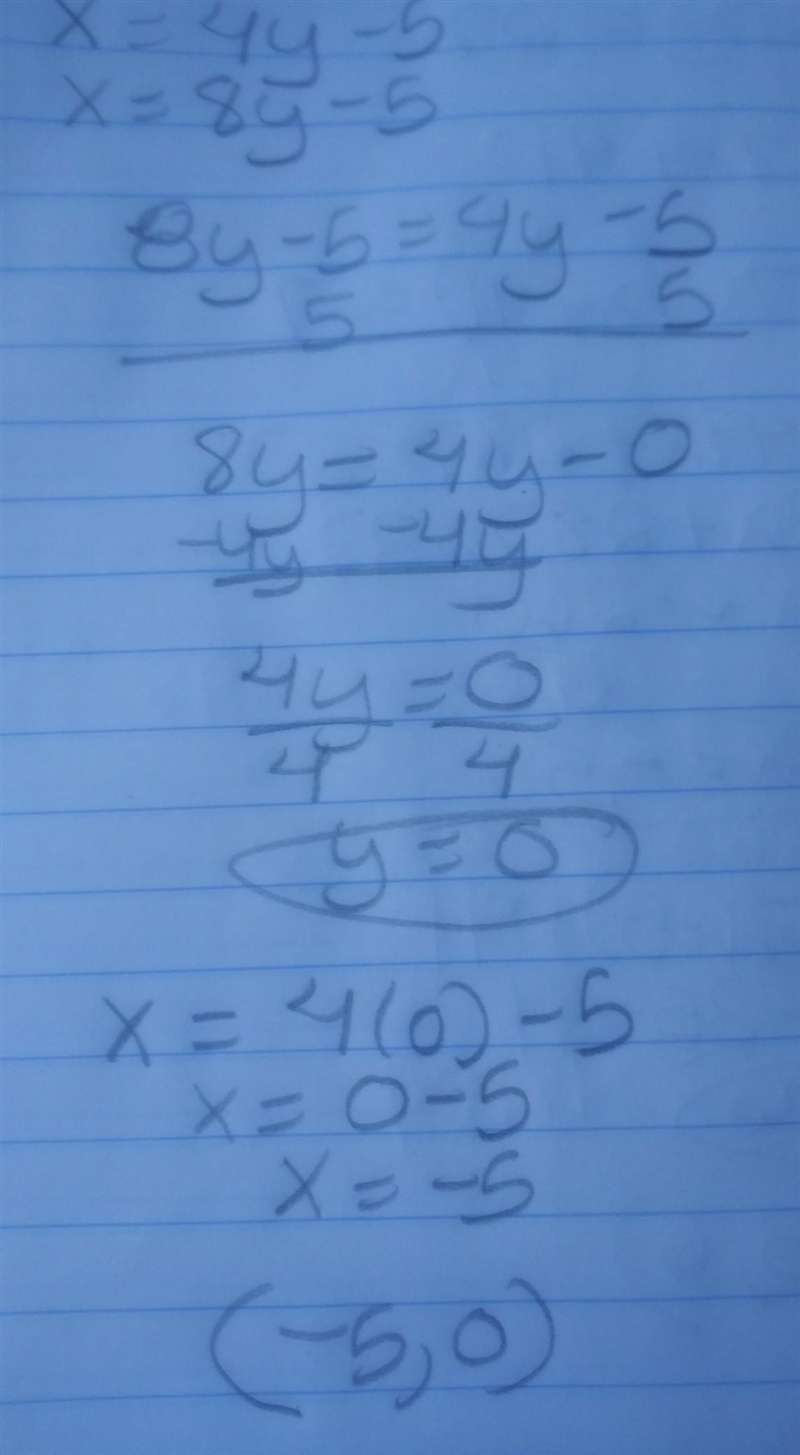 x = 4y - 5
x = 8y - 5
8y - 5 = 4y - 5
5 5
8y = 4y - 0
-4y -4y
4y = 0
4 4
y = 0
x = 4(0) - 5
x = 0 - 5
x = -5
(-5, 0)